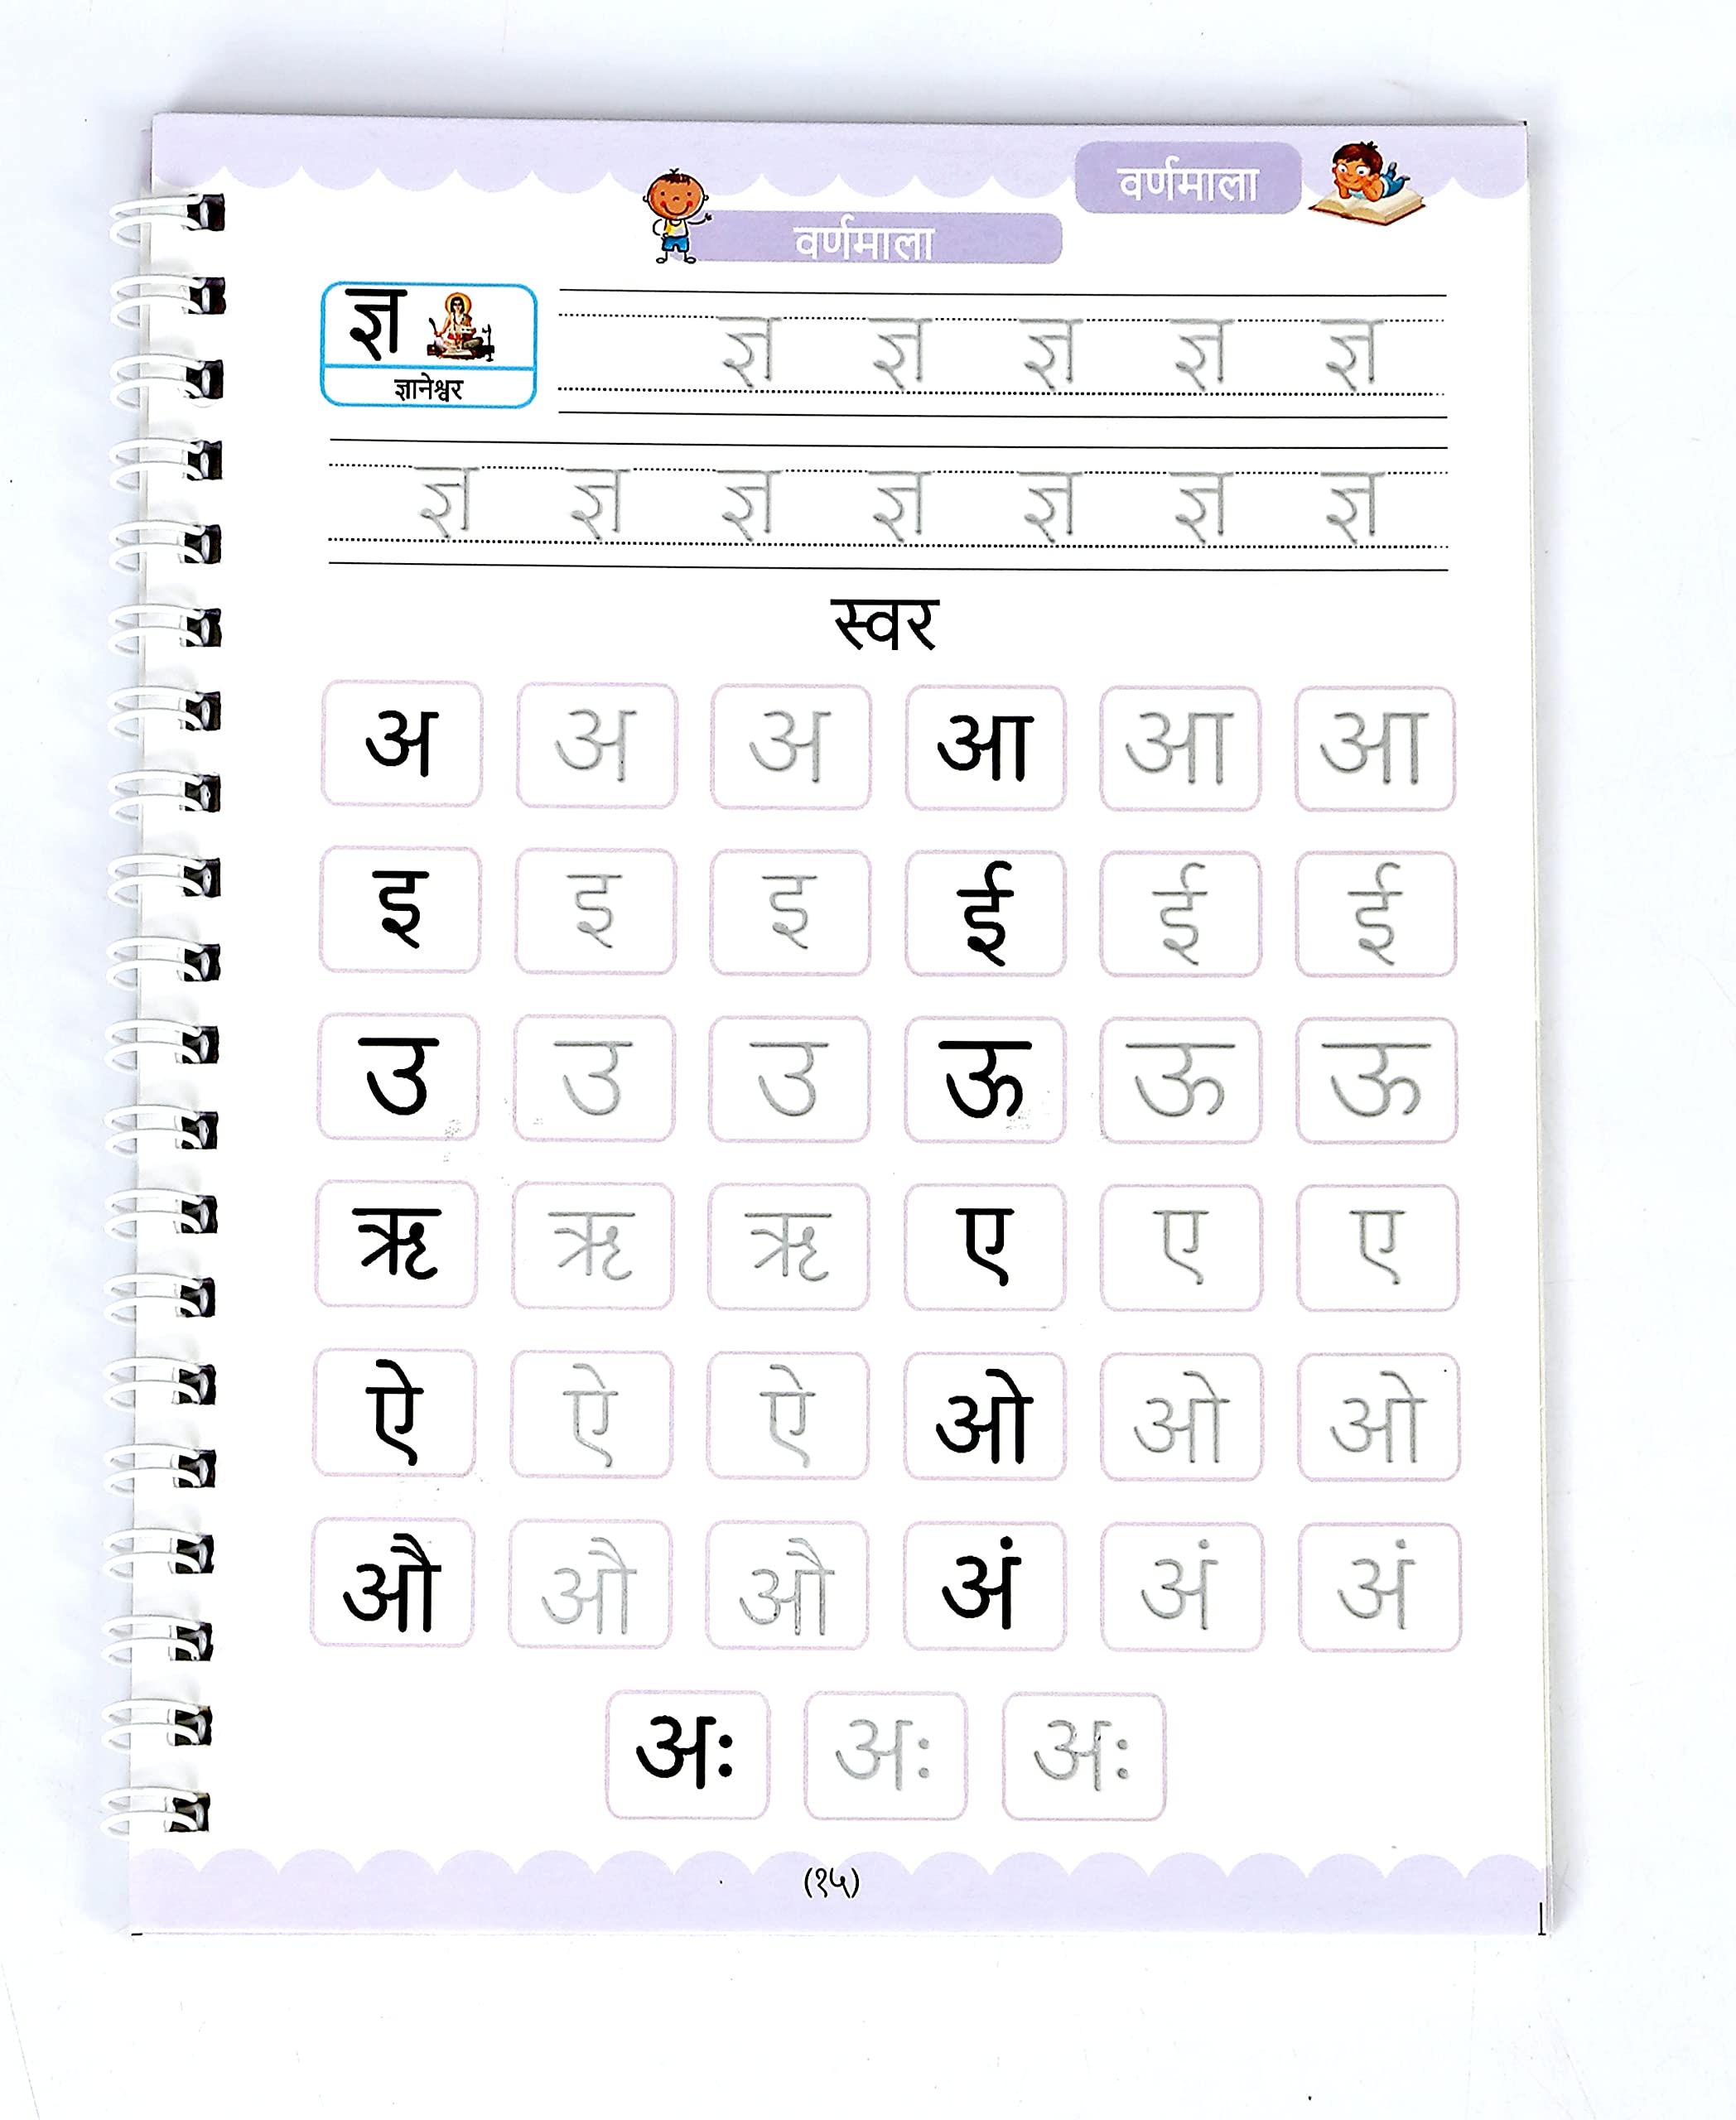 वर्णमाला
वर्णमाला
ज्ञ
ज्ञानेश्वर
ज्ञ ज्ञ ज्ञ ज्ञ ज्ञ
ज्ञ ज्ञ ज्ञ ज्ञ ज्ञ ज्ञ ज्ञ
स्वर
अ अ अ आ आ आ
इ इ इ ई ई ई
उ उ उ ऊ ऊ ऊ
ऋ ऋ ऋ ए ए ए
ऐ ऐ ऐ ओ ओ ओ
औ औ औ अं अं अं
अः अः अः
(१५)